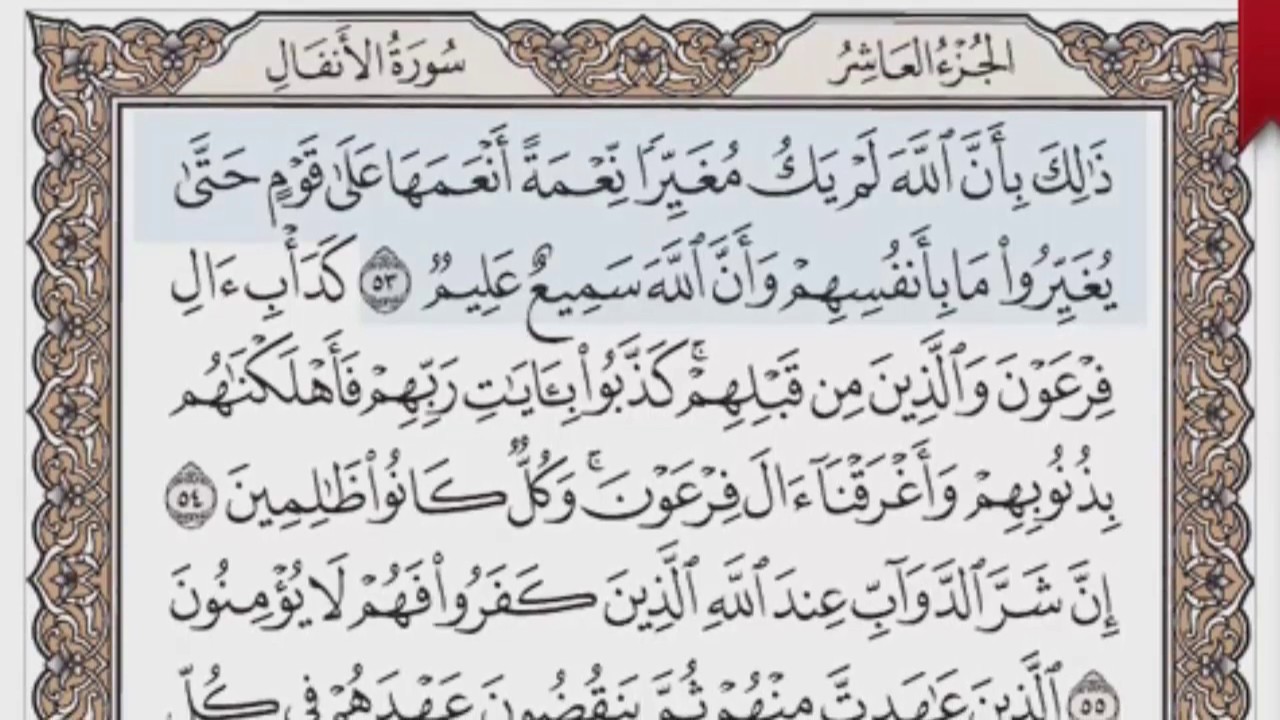 الجُزْءُ العَاشِرُ
سُورَةُ الأَنفَالِ
ذَٰلِكَ بِأَنَّ ٱللَّهَ لَمْ يَكُ مُغَيِّرًا نِّعْمَةً أَنْعَمَهَا عَلَىٰ قَوْمٍ حَتَّىٰ
يُغَيِّرُوا۟ مَا بِأَنفُسِهِمْ وَأَنَّ ٱللَّهَ سَمِيعٌ عَلِيمٌ ٥٣ كَدَأْبِ ءَالِ
فِرْعَوْنَ وَٱلَّذِينَ مِن قَبْلِهِمْ ۚ كَذَّبُوا۟ بِـَٔايَٰتِ رَبِّهِمْ فَأَهْلَكْنَٰهُم
بِذُنُوبِهِمْ وَأَغْرَقْنَآ ءَالَ فِرْعَوْنَ ۚ وَكُلٌّ كَانُوا۟ ظَٰلِمِينَ ٥٤
إِنَّ شَرَّ ٱلدَّوَآبِّ عِندَ ٱللَّهِ ٱلَّذِينَ كَفَرُوا۟ فَهُمْ لَا يُؤْمِنُونَ
٥٥ ٱلَّذِينَ عَٰهَدتَّ مِنْهُمْ ثُمَّ يَنقُضُونَ عَهْدَهُمْ فِى كُلِّ